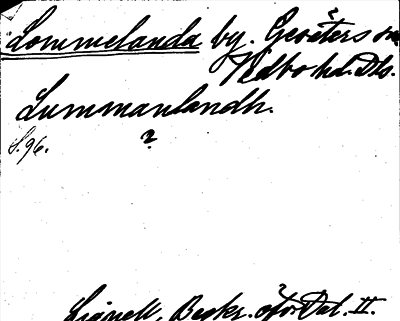 Lommelanda by. Gesäters sn
Vedbo hd. Dls.
Lummanlandh.
S. 96.
?
Lignell, Beskr. öfver Dal. II.